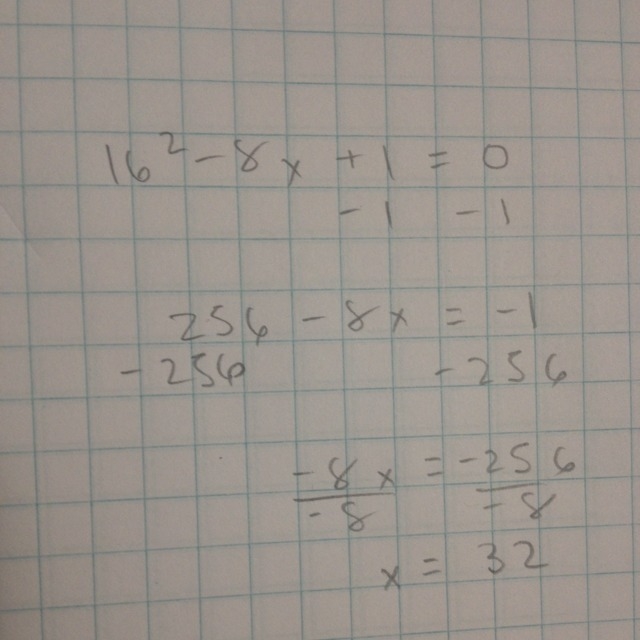 16² - 8x + 1 = 0
- 1 - 1
256 - 8x = -1
- 256 - 256
-8x = -256
-8 -8
x = 32